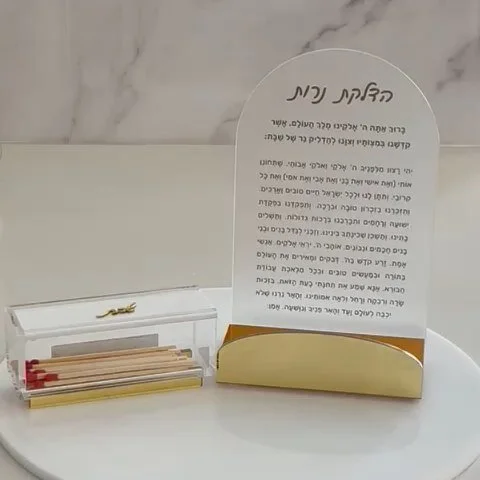 הדלקת נרות
ברוך אתה ה' אלקינו מלך העולם, אשר
קדשנו במצותיו וצונו להדליק נר של שבת:
יהי רצון מלפניך ה' אלקי ואלקי אבותי, שתחונן
אותי (ואת אישי ואת בני ואת אבי ואת אמי) ואת כל
קרובי, ותתן לנו ולכל ישראל חיים טובים וארכים,
ותזכרנו בזכרון טובה וברכה, ותפקדנו בפקדת
ישועה ורחמים ותברכנו ברכות גדולות, ותשלים
בתינו, ותשכן שכינתך בינינו, וזכני לגדל בנים ובני
בנים חכמים ונבונים, אוהבי ה', יראי אלקים, אנשי
אמת, זרע קדש בה' דבקים ומאירים את העולם
בתורה ובמעשים טובים ובכל מלאכת עבודת
הבורא, אנא שמע את תחנתי בעת הזאת, בזכות
שרה ורבקה ורחל ולאה אמותינו, והאר נרנו שלא
יכבה לעולם ועד והאר פניך ונושעה, אמן:
שבת